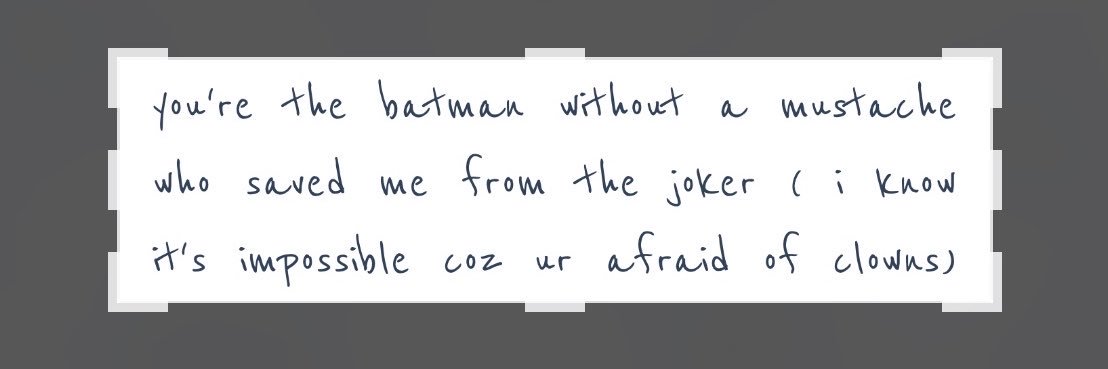 you're the batman without a mustache
who saved me from the joker ( i know
it's impossible coz ur afraid of clowns)